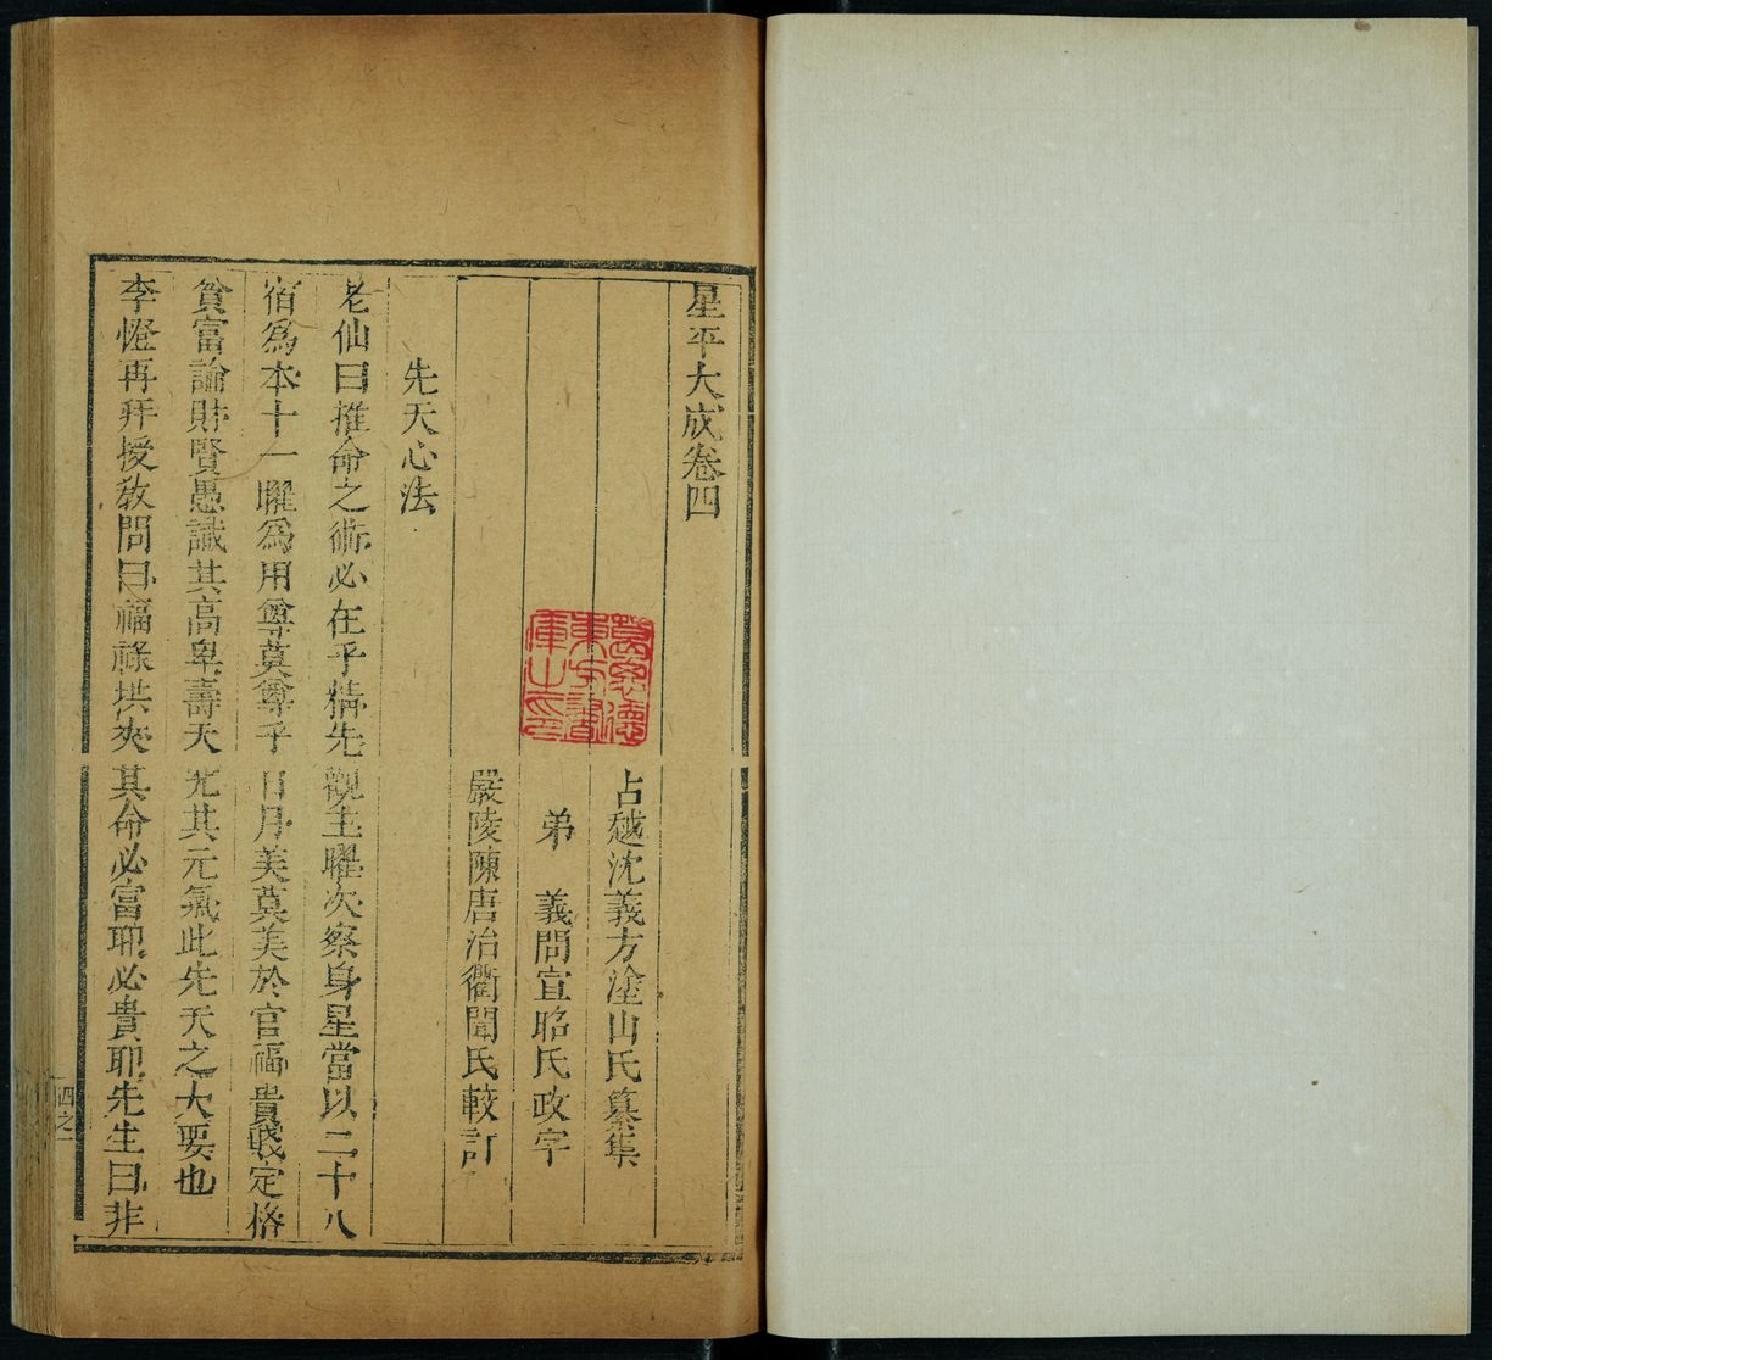 星平大成卷四
古越沈義方塗山氏纂集
弟　義問宣昭氏政字
嚴陵陳唐治衢聞氏較訂
先天心法
老仙曰推命之術必在乎精先觀主曜次察身星當以二十八
宿爲本十一曜爲用尊莫尊乎日月美莫美於官福貴賤定格
貧富論財賢愚識其高卑壽夭尤其元氣此先天之大要也
李憕再拜授教問曰福祿拱夾其命必富耶必貴耶先生曰非
四之一
葛思德東方書庫之印